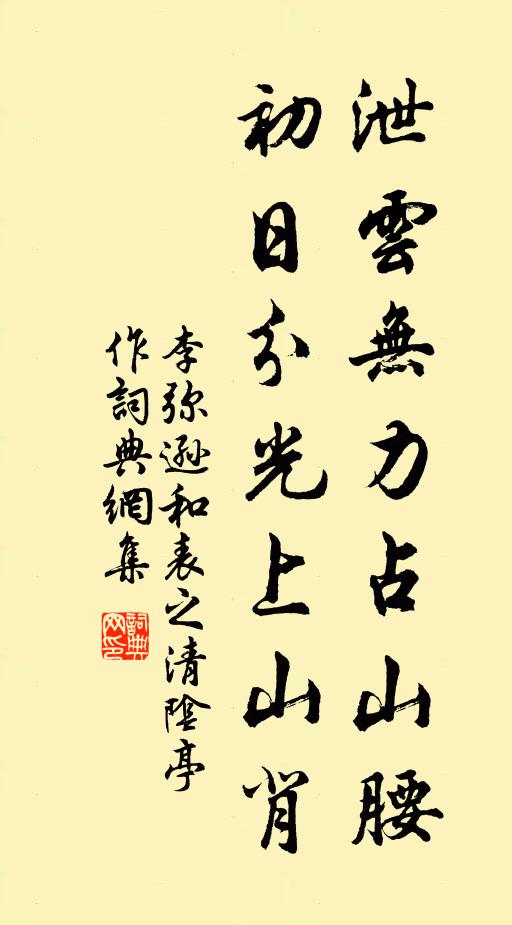 泄雲無力占山腰
初日分光上山背
李弥遜和表之清陰亭
作詞典網集
詞典网印